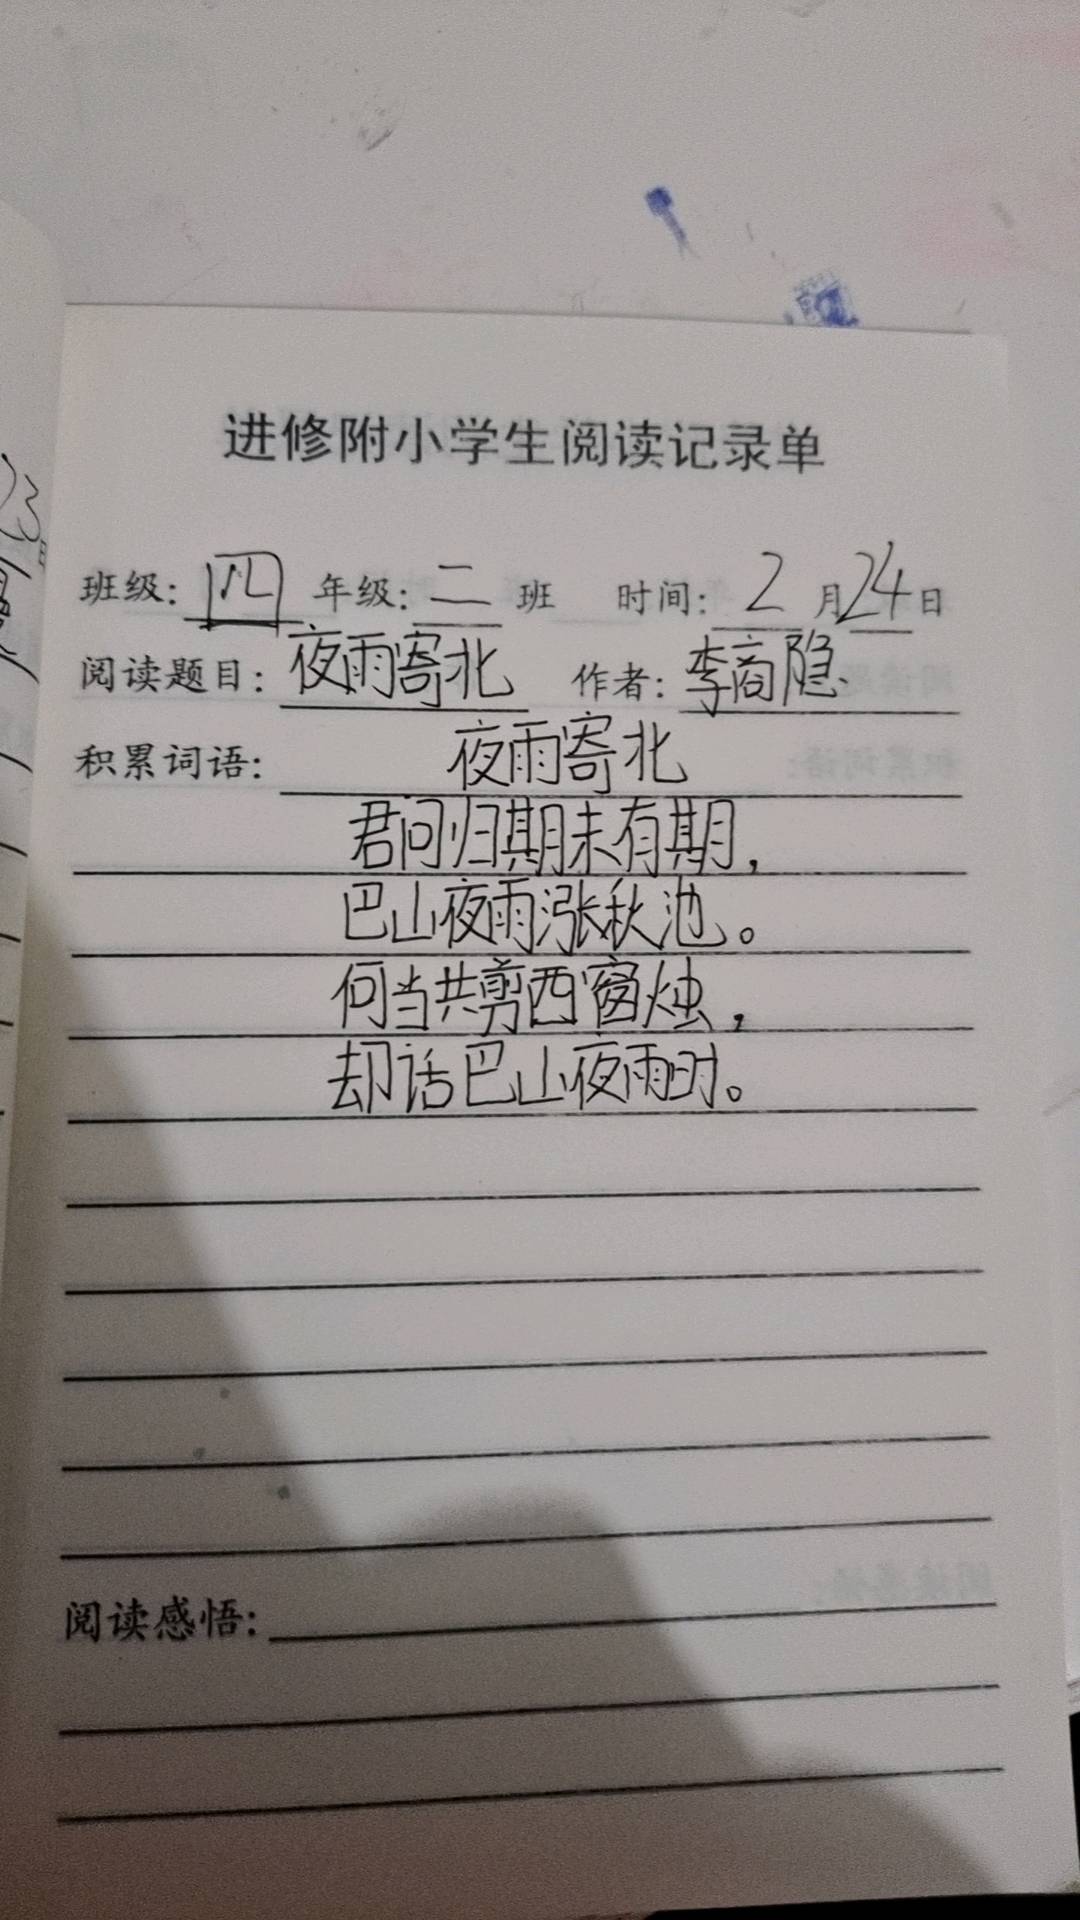 进修附小学生阅读记录单
班级:四年级:二班 时间:2月24日
阅读题目:夜雨寄北 作者:李商隐
积累词语: 夜雨寄北
君问归期未有期,
巴山夜雨涨秋池。
何当共剪西窗烛,
却话巴山夜雨时。
阅读感悟: